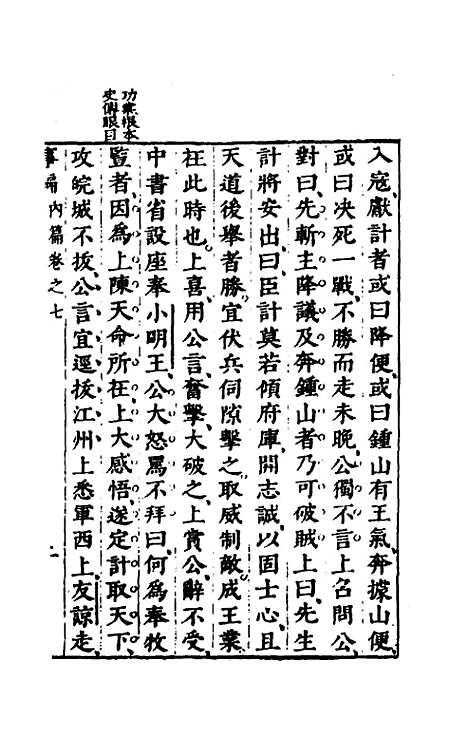 入寇獻計者或曰降便或曰鍾山有王氣奔據山便
或曰决死一戰不勝而走未晚公獨不言上召問公
對曰先斬主降議及奔鍾山者乃可破賊上曰先生
計將安出曰臣計莫若傾府庫開志誠以固士心且
天道後舉者勝宜伏兵伺隙擊之取威制敵成王業
在此時也上喜用公言奮擊大破之上賞公辭不受
中書省設座奉小明王公大怒罵不拜曰何為奉牧
豎者因為上陳天命所在上大感悟遂定計取天下
攻皖城不拔公言宜逕拔江州上悉軍西上友諒走
內篇卷之七
史傳眼目